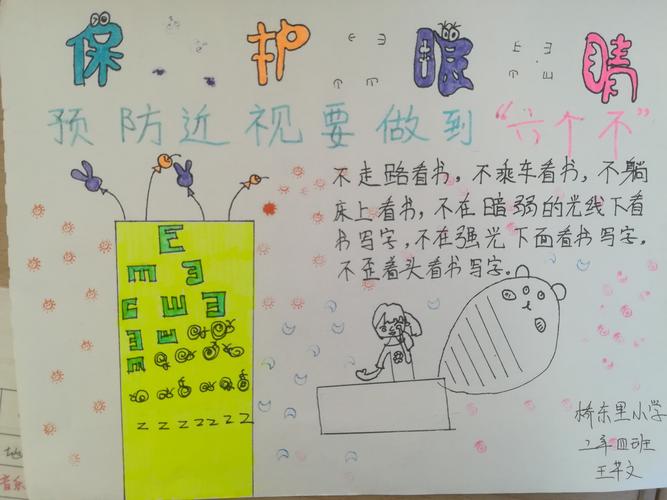 保护眼睛
预防近视要做到“六个不”
不走路看书，不乘车看书，不躺
床上看书，不在暗弱的光线下看
书写字，不在强光下面看书写字。
不歪着头看书写字。
E
m 3
c ш 3
3 ш
m
z z z z z z z
桥东里小学
2年四班
王书文
地
音乐